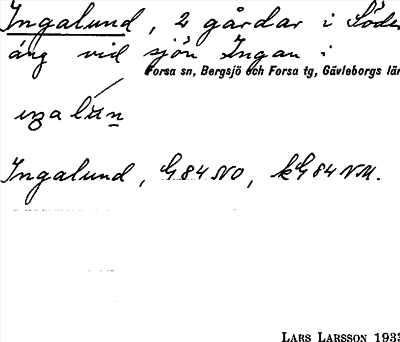 Ingalund, 2 gårdar i Söder
äng vid sjön Ingan i
Forsa sn, Bergsjö och Forsa tg, Gävleborgs län
Ingalund, G84NO, kG84NM.
LARS LARSSON 1933